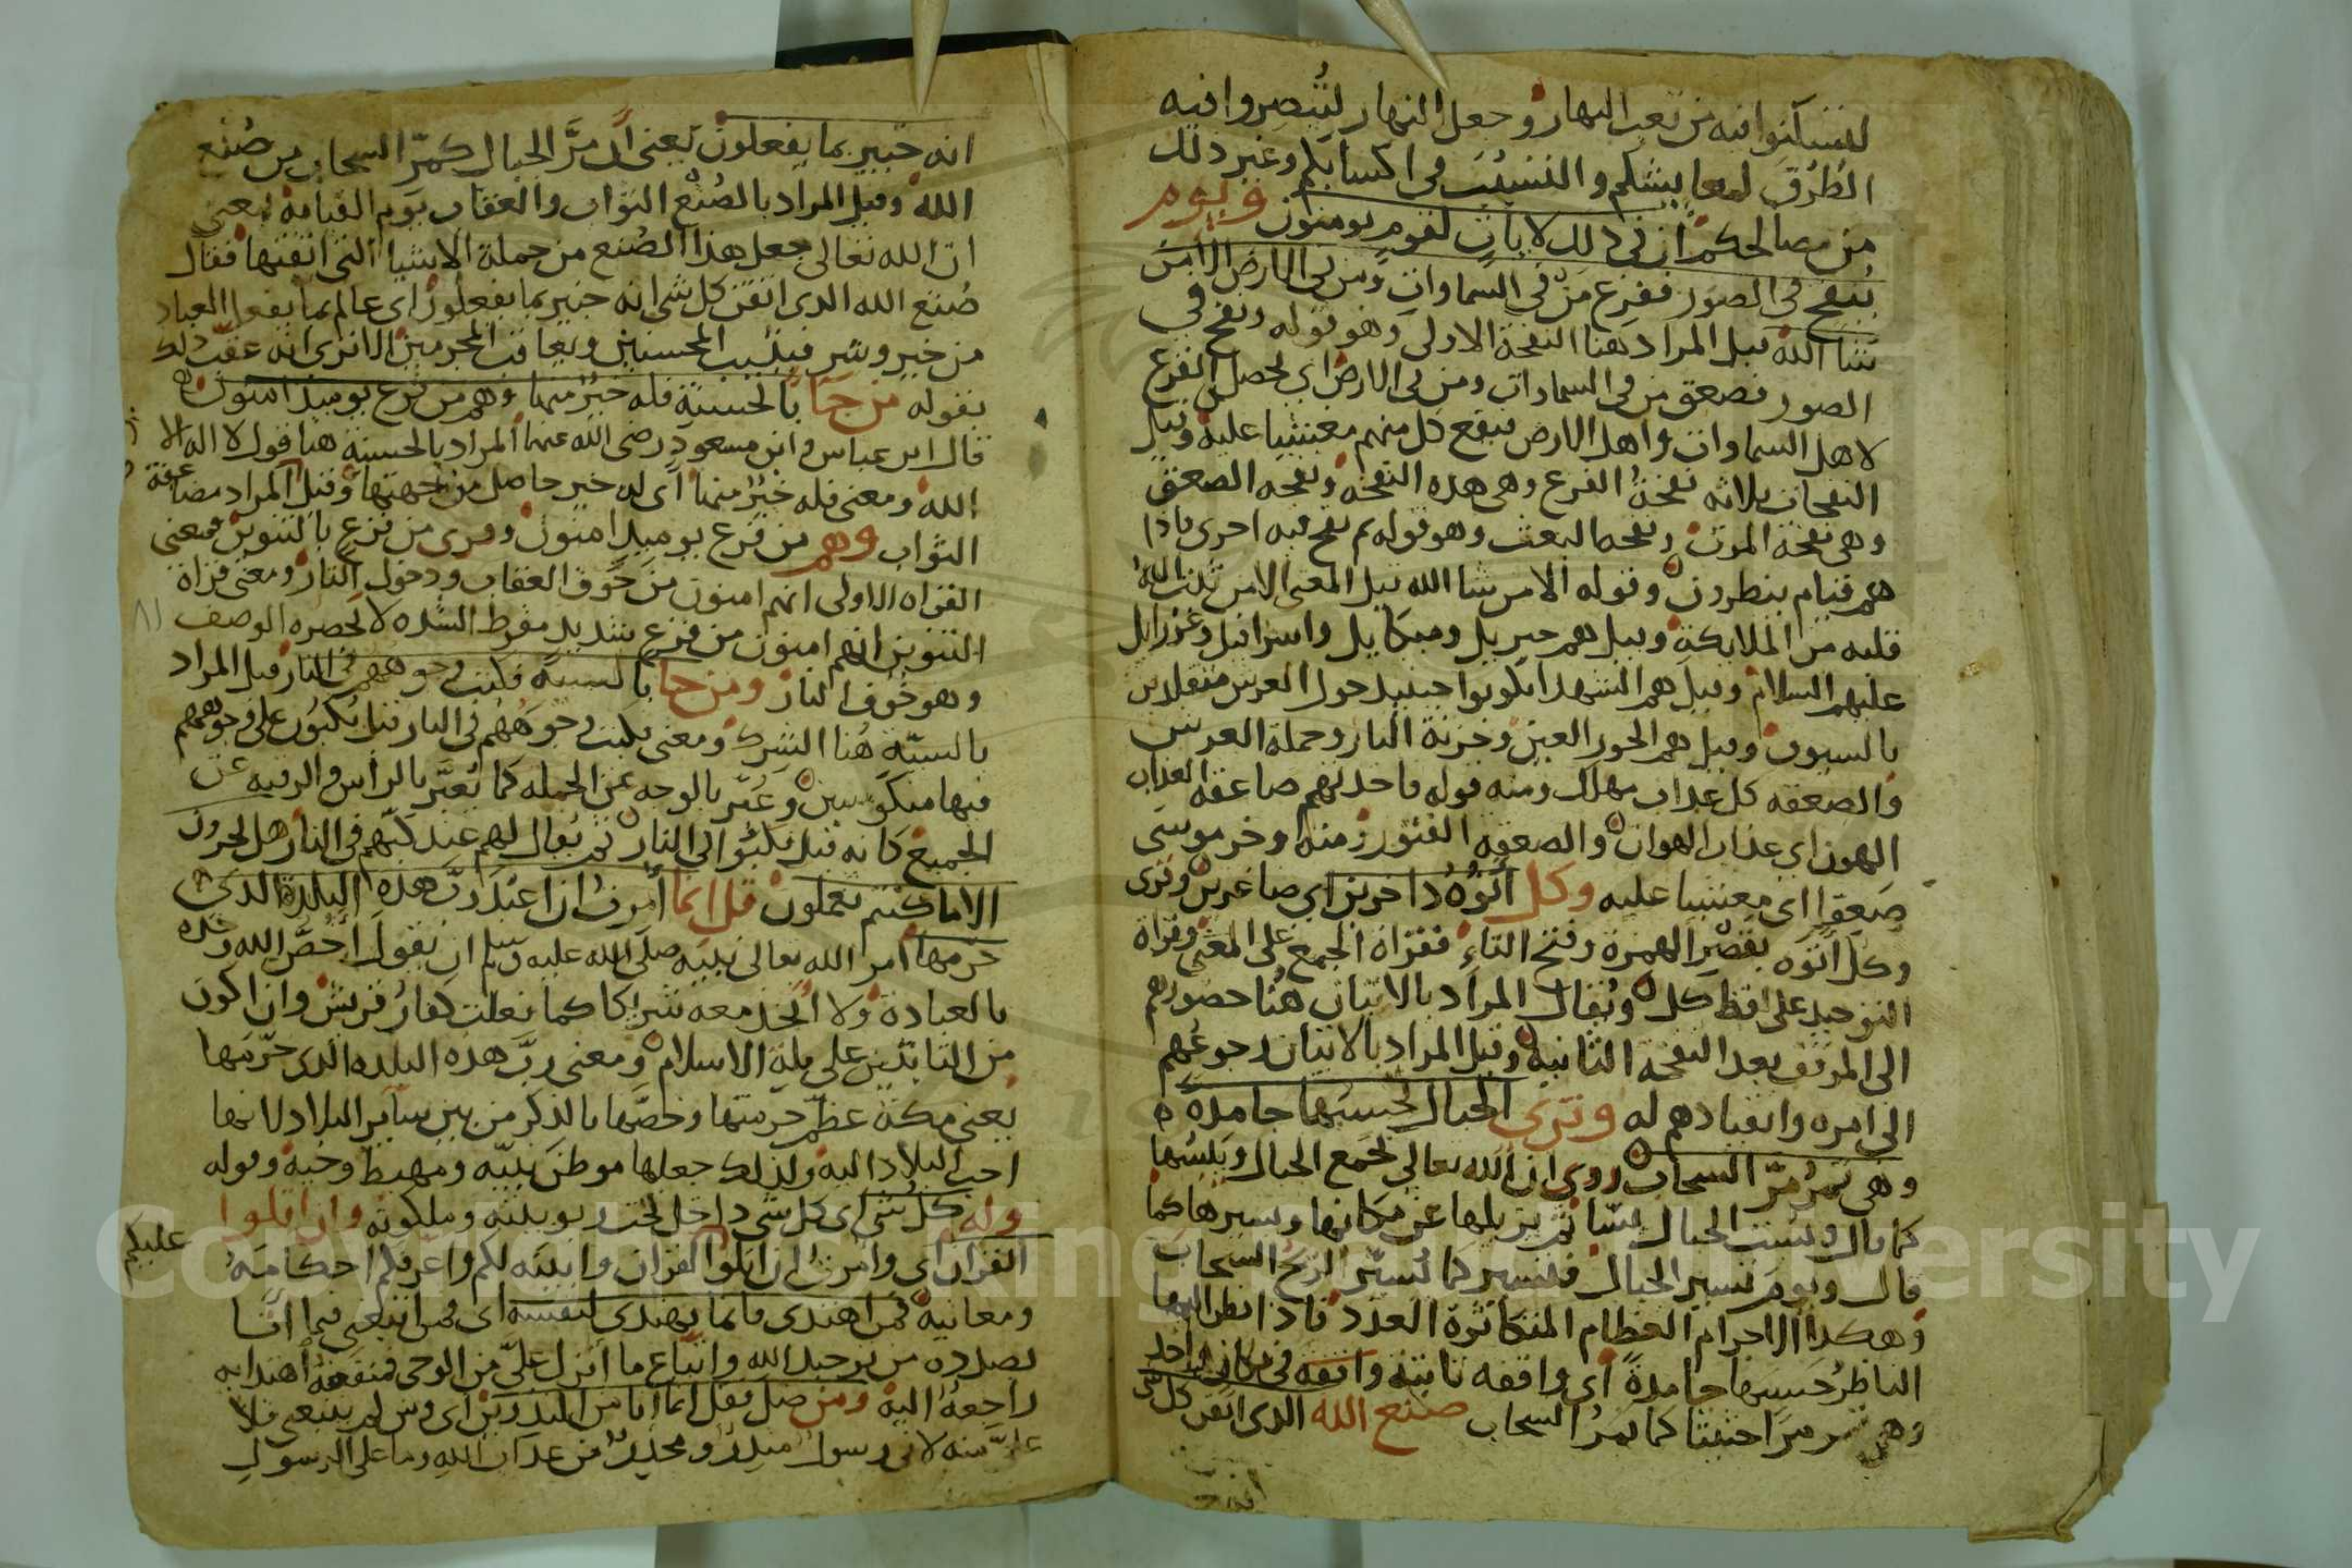 لتسكنوا فيه من تعب النهار وجعل النهار لتبصروا فيه
الطرق لمعايشكم والتسبب في اكسابكم وغير ذلك
من مصالحكم ان في ذلك لايات لقوم يومنون ويوم
ينفخ في الصور ففزع من في السماوات ومن في الارض الا من
شا الله قيل المراد هنا النفخة الاولى وهو قوله ونفخ في
الصور فصعق من في السماوات ومن في الارض اي يحصل الفزع
لاهل السماوات واهل الارض فيقع كل منهم مغشيا عليه وقيل
النفخات ثلاثه نفخة الفزع وهي هذه النفخة ونفخه الصعق
وهي نفخة الموت ونفخه البعث وهو قوله ثم نفخ فيه اخرى فاذا
هم قيام ينظرون وقوله الا من شا الله قيل المعنى الا من ثبت الله
قلبه من الملايكة وقيل هم جبريل وميكايل واسرافيل وعزرايل
عليهم السلام وقيل هم الشهدا يكونوا حينيذ حول العرش متقلدين
بالسيوف وقيل هم الحور العين وخزنة النار وحملة العرش
والصعقه كل عذاب مهلك ومنه قوله فاخذتهم صاعقه العذاب
الهون اي عذاب الهوان والصعقه ومنه وخر موسى
صعقا اي مغشيا عليه وكل اتوه داخرين اي صاغرين وقرى
وكل اتوه بقصر الهمزة وفتح التاء فقراة الجمع على المعنى وقراة
التوحيد على لفظ كل ويقال المراد بالاتيان هنا حضورهم
الى الموقف بعد النفخه الثانيه وقيل المراد بالاتيان رجوعهم
الى امره وانقيادهم له وترى الجبال تحسبها جامدة
وهي تمر مر السحاب روى ان الله تعالى يجمع الجبال ويبسها
كما قال وبست الجبال بسا ثم يزيلها عن مكانها وسيرها كما
قال ويوم نسير الجبال فتسير كما تسير الريح السحاب
وهكذا الاجرام العظام المتكاثرة العدد فاذا نظر اليها
الناظر حسبها جامدة اي واقفه ثابتة واقفه في مكان واحد
وهي تمر مرا حثيثا كما يمر السحاب صنع الله الذي اتقن كل شي
انه خبير بما يفعلون يعني ان مر الجبال كمر السحاب من صنع
الله وقيل المراد بالصنع الثواب والعقاب يوم القيامة يعني
ان الله تعالى جعل هذا الصنع من جملة الاشيا التي اتقنها فقال
صنع الله الذي اتقن كل شي انه خبير بما يفعلون اي عالم بما يفعل العباد
من خير وشر فيثيب المحسنين ويعاقب المجرمين الا ترى انه عقب ذلك
بقوله من جا بالحسنة فله خير منها وهم من فزع يوميذ امنون
قال ابن عباس وابن مسعود رضى الله عنهما المراد بالحسنة هنا قول لا اله الا
الله ومعنى فله خير منها اي له خير حاصل من جهتها وقيل المراد مضاعفة
الثواب وهم من فزع يوميذ امنون وقرى من فزع بالتنوين فمعنى
القراه الاولى انهم امنون من خوف العقاب ودخول النار ومعنى قراة
التنوين انهم امنون من فزع شديد مفرط الشده لا يحصره الوصف
وهو خوف النار ومن جا بالسيية فكبت وجوههم في النار قيل المراد
بالسيية هنا الشرك ومعنى فكبت وجوههم في النار قيل يكبون على وجوههم
فيها منكوسين وعبر بالوجه عن الجمله كما يعبر بالراس والرقبه عن
الجميع كانه قيل يكبوا الى النار ثم يقال لهم عند كبهم في النار هل تجزون
الا ما كنتم تعملون قل انما امرت ان اعبد رب هذه البلدة الذي
حرمها امر الله تعالى نبيه صلى الله عليه وسلم ان يقول اخص الله وحده
بالعبادة ولا اتخذ معه شريكا كما فعلت كفار قريش وان اكون
من الثابتين على ملة الاسلام ومعنى رب هذه البلده الذي حرمها
يعني مكة عظم حرمتها وخصها بالذكر من بين ساير البلاد لانها
احب البلاد اليه ولذلك جعلها موطن نبيه ومهبط وحيه وقوله
وله كل شي اي كل شي داخل تحت ربوبيته وملكوته وان اتلوا
القران اي وامرت ان اتلوا القران وابينه لكم واعرفكم احكامه عليكم
ومعانيه فمن اهتدى فانما يهتدى لنفسه اي فمن اتبعني فيما انا
بصدده من توحيد الله واتباع ما انزل علي من الوحى فمنفعة اهتدايه
راجعة اليه ومن ضل فقل انما انا من المنذرين اي ومن لم يتبعني فلا
علي منه لاني رسول منذر ومحذر من عذاب الله وما على الرسول
Copyright © King Saud University